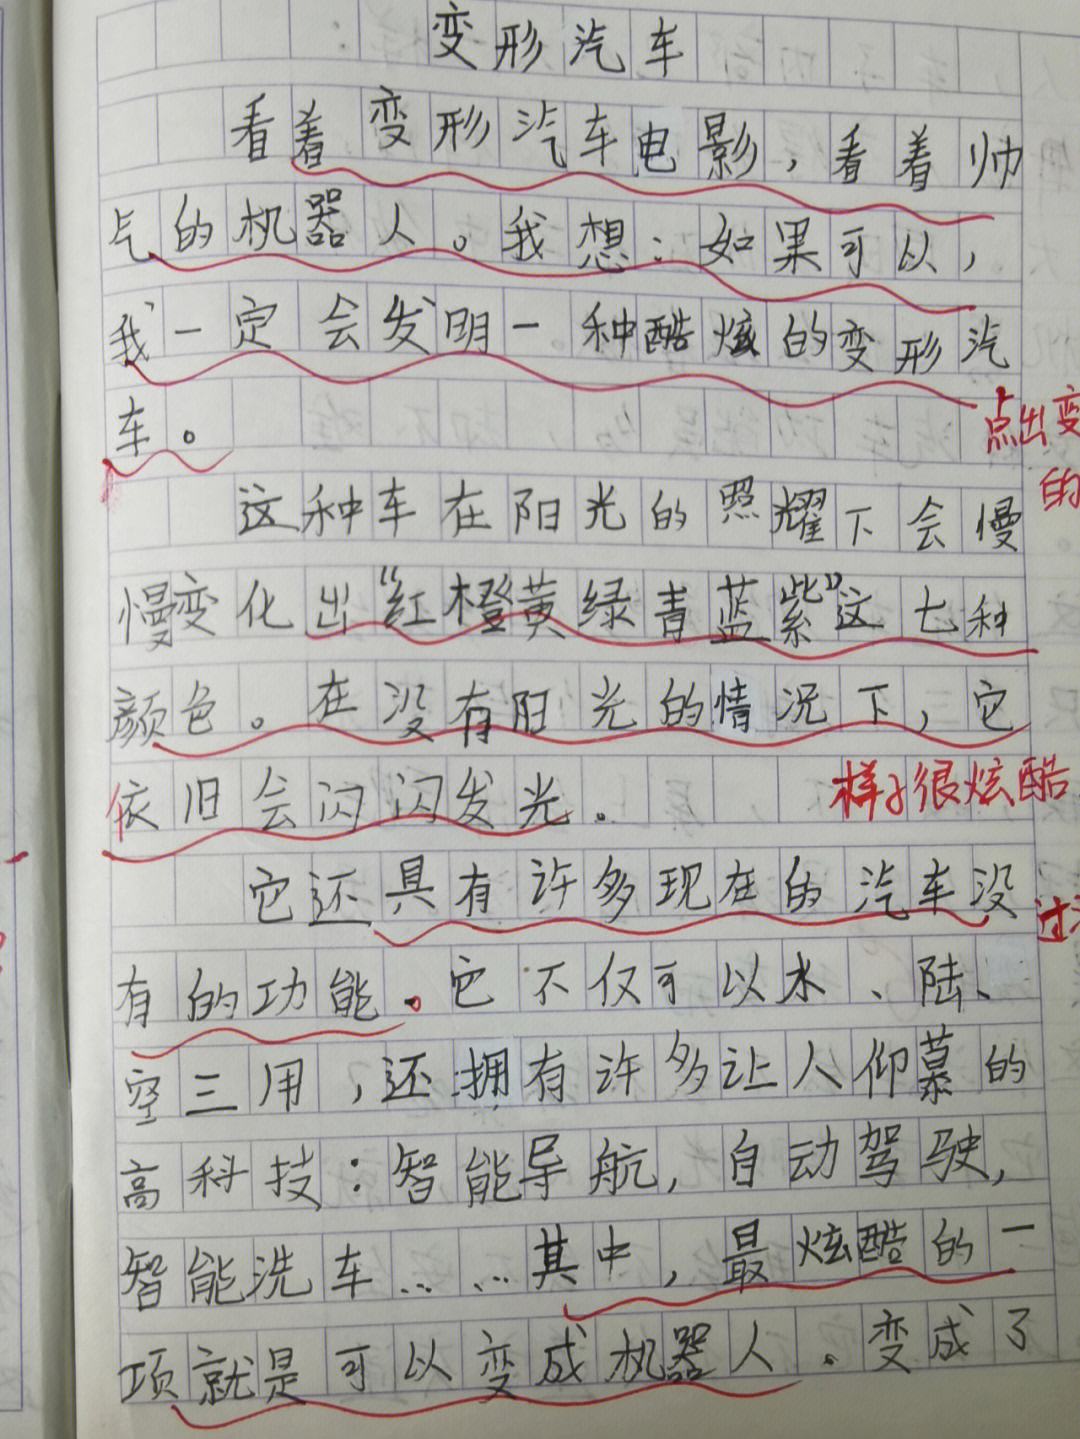 变形汽车
看着变形汽车电影，看着帅
气的机器人。我想：如果可以，
我一定会发明一种酷炫的变形汽
车。
点出变
的
这种车在阳光的照耀下会慢
慢变化出“红橙黄绿青蓝紫”这七种
颜色。在没有阳光的情况下，它
依旧会闪闪发光。
样子很炫酷
它还具有许多现在的汽车没
过
有的功能。它不仅可以水、陆、
空三用，还拥有许多让人仰慕的
高科技：智能导航，自动驾驶，
智能洗车……其中，最炫酷的一
项就是可以变成机器人。变成了